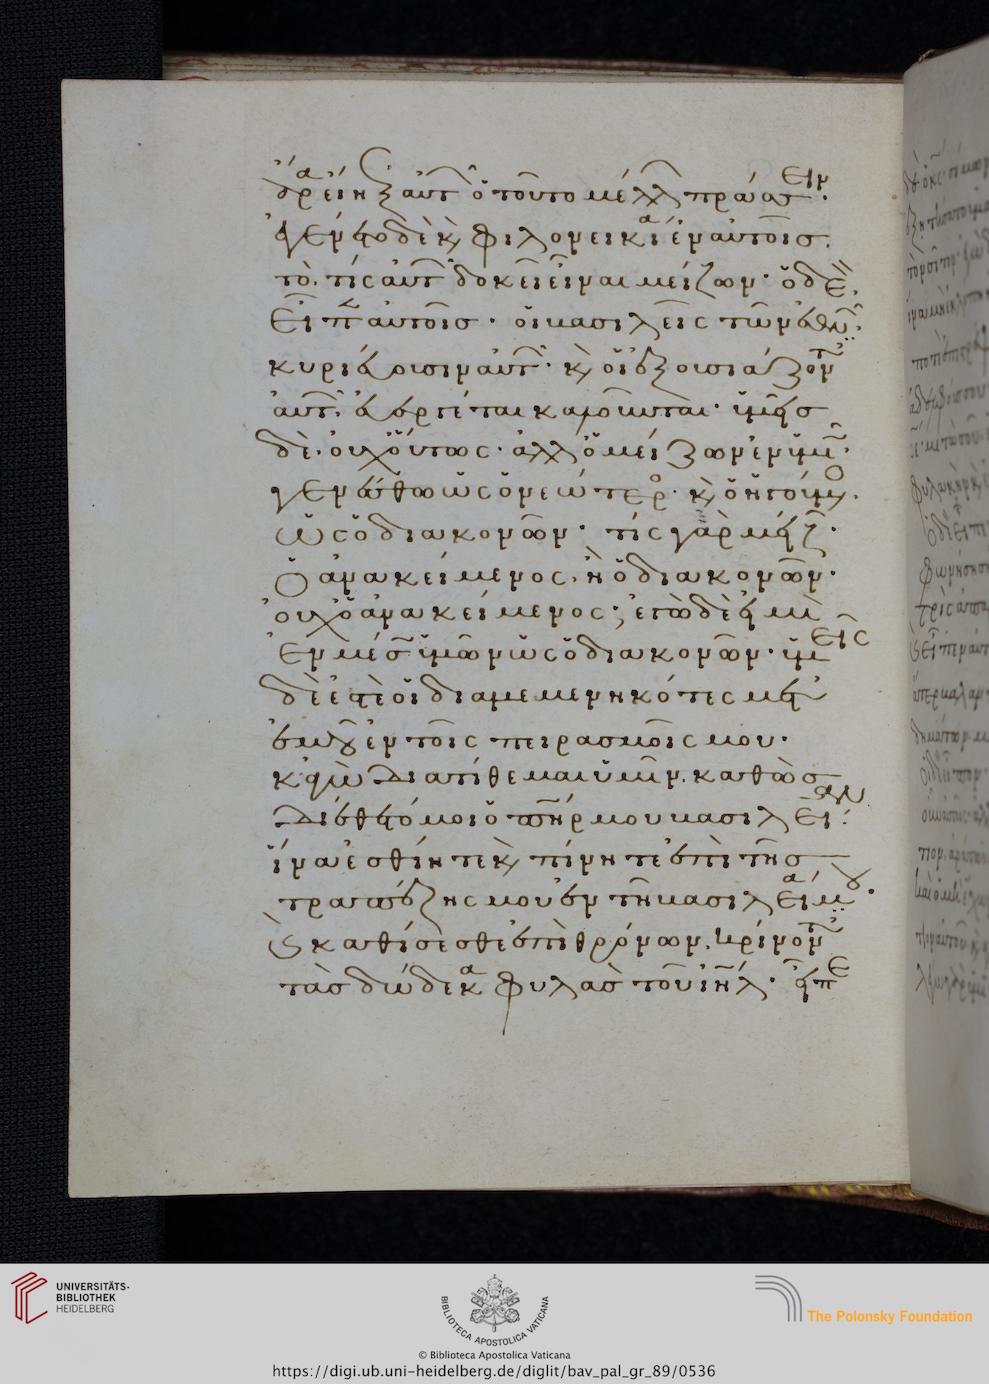 ἄρα εἴη ἐξ αὐτῶν ὁ τοῦτο μέλλων πράσσειν.
ἐγένετο δὲ καὶ φιλονεικία ἐν αὐτοῖς.
τὸ, τίς αὐτῶν δοκεῖ εἶναι μείζων· ὁ δὲ
εἶπεν αὐτοῖς· οἱ βασιλεῖς τῶν ἐθνῶν
κυριεύουσιν αὐτῶν· καὶ οἱ ἐξουσιάζοντες
αὐτῶν, εὐεργέται καλοῦνται· ὑμεῖς
δὲ οὐχ οὕτως· ἀλλ' ὁ μείζων ἐν ὑμῖν·
γενέσθω ὡς ὁ νεώτερος· καὶ ὁ ἡγούμενος.
ὡς ὁ διακονῶν· τίς γὰρ μείζων·
ὁ ἀνακείμενος, ἢ ὁ διακονῶν·
οὐχ ὁ ἀνακείμενος; ἐγὼ δὲ εἰμὶ
ἐν μέσῳ ὑμῶν ὡς ὁ διακονῶν· ὑμεῖς
δὲ ἐστὲ οἱ διαμεμενηκότες μετ'
ἐμοῦ ἐν τοῖς πειρασμοῖς μου·
κἀγὼ διατίθεμαι ὑμῖν, καθὼς
διέθετό μοι ὁ πατήρ μου βασιλείαν·
ἵνα ἐσθίητε καὶ πίνητε ἐπὶ τῆς
τραπέζης μου ἐν τῇ βασιλείᾳ μου·
καὶ καθίσεσθε ἐπὶ θρόνων, κρίνοντες
τὰς δώδεκα φυλὰς τοῦ ἰσραήλ· εἶπε
UNIVERSITÄTS-
BIBLIOTHEK
HEIDELBERG
BIBLIOTECA APOSTOLICA VATICANA
The Polonsky Foundation
© Biblioteca Apostolica Vaticana
https://digi.ub.uni-heidelberg.de/diglit/bav_pal_gr_89/0536